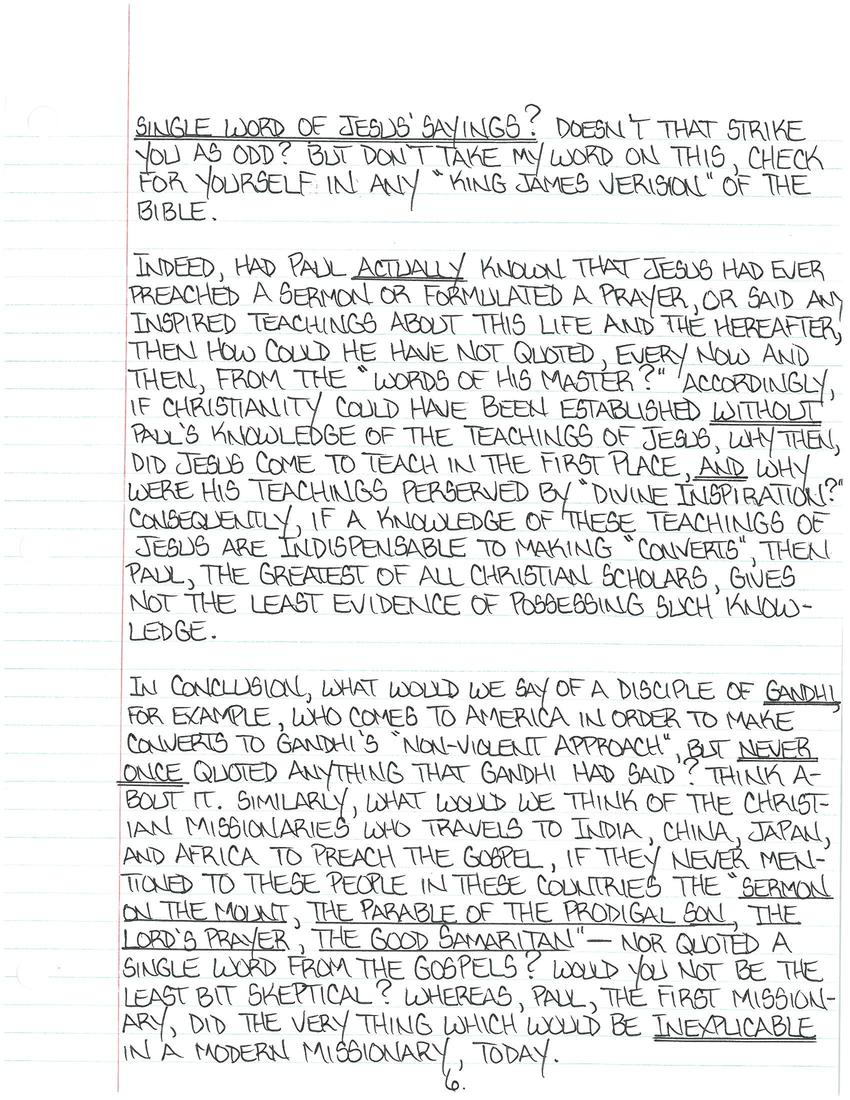 SINGLE WORD OF JESUS' SAYINGS? DOESN'T THAT STRIKE
YOU AS ODD? BUT DON'T TAKE MY WORD ON THIS, CHECK
FOR YOURSELF IN ANY "KING JAMES VERISION" OF THE
BIBLE.
INDEED, HAD PAUL ACTUALLY KNOWN THAT JESUS HAD EVER
PREACHED A SERMON OR FORMULATED A PRAYER, OR SAID ANY
INSPIRED TEACHINGS ABOUT THIS LIFE AND THE HEREAFTER,
THEN HOW COULD HE HAVE NOT QUOTED, EVERY NOW AND
THEN, FROM THE "WORDS OF HIS MASTER?" ACCORDINGLY,
IF CHRISTIANITY COULD HAVE BEEN ESTABLISHED WITHOUT
PAUL'S KNOWLEDGE OF THE TEACHINGS OF JESUS, WHY THEN,
DID JESUS COME TO TEACH IN THE FIRST PLACE, AND WHY
WERE HIS TEACHINGS PERSERVED BY "DIVINE INSPIRATION?"
CONSEQUENTLY, IF A KNOWLEDGE OF THESE TEACHINGS OF
JESUS ARE INDISPENSABLE TO MAKING "CONVERTS", THEN
PAUL, THE GREATEST OF ALL CHRISTIAN SCHOLARS, GIVES
NOT THE LEAST EVIDENCE OF POSSESSING SUCH KNOW-
LEDGE.
IN CONCLUSION, WHAT WOULD WE SAY OF A DISCIPLE OF GANDHI,
FOR EXAMPLE, WHO COMES TO AMERICA IN ORDER TO MAKE
CONVERTS TO GANDHI'S "NON-VIOLENT APPROACH", BUT NEVER
ONCE QUOTED ANYTHING THAT GANDHI HAD SAID? THINK A-
BOUT IT. SIMILARLY, WHAT WOULD WE THINK OF THE CHRIST-
IAN MISSIONARIES WHO TRAVELS TO INDIA, CHINA, JAPAN,
AND AFRICA TO PREACH THE GOSPEL, IF THEY NEVER MEN-
TIONED TO THESE PEOPLE IN THESE COUNTRIES THE "SERMON
ON THE MOUNT, THE PARABLE OF THE PRODIGAL SON, THE
LORD'S PRAYER, THE GOOD SAMARITAN" — NOR QUOTED A
SINGLE WORD FROM THE GOSPELS? WOULD YOU NOT BE THE
LEAST BIT SKEPTICAL? WHEREAS, PAUL, THE FIRST MISSION-
ARY, DID THE VERY THING WHICH WOULD BE INEXPLICABLE
IN A MODERN MISSIONARY, TODAY.
6.